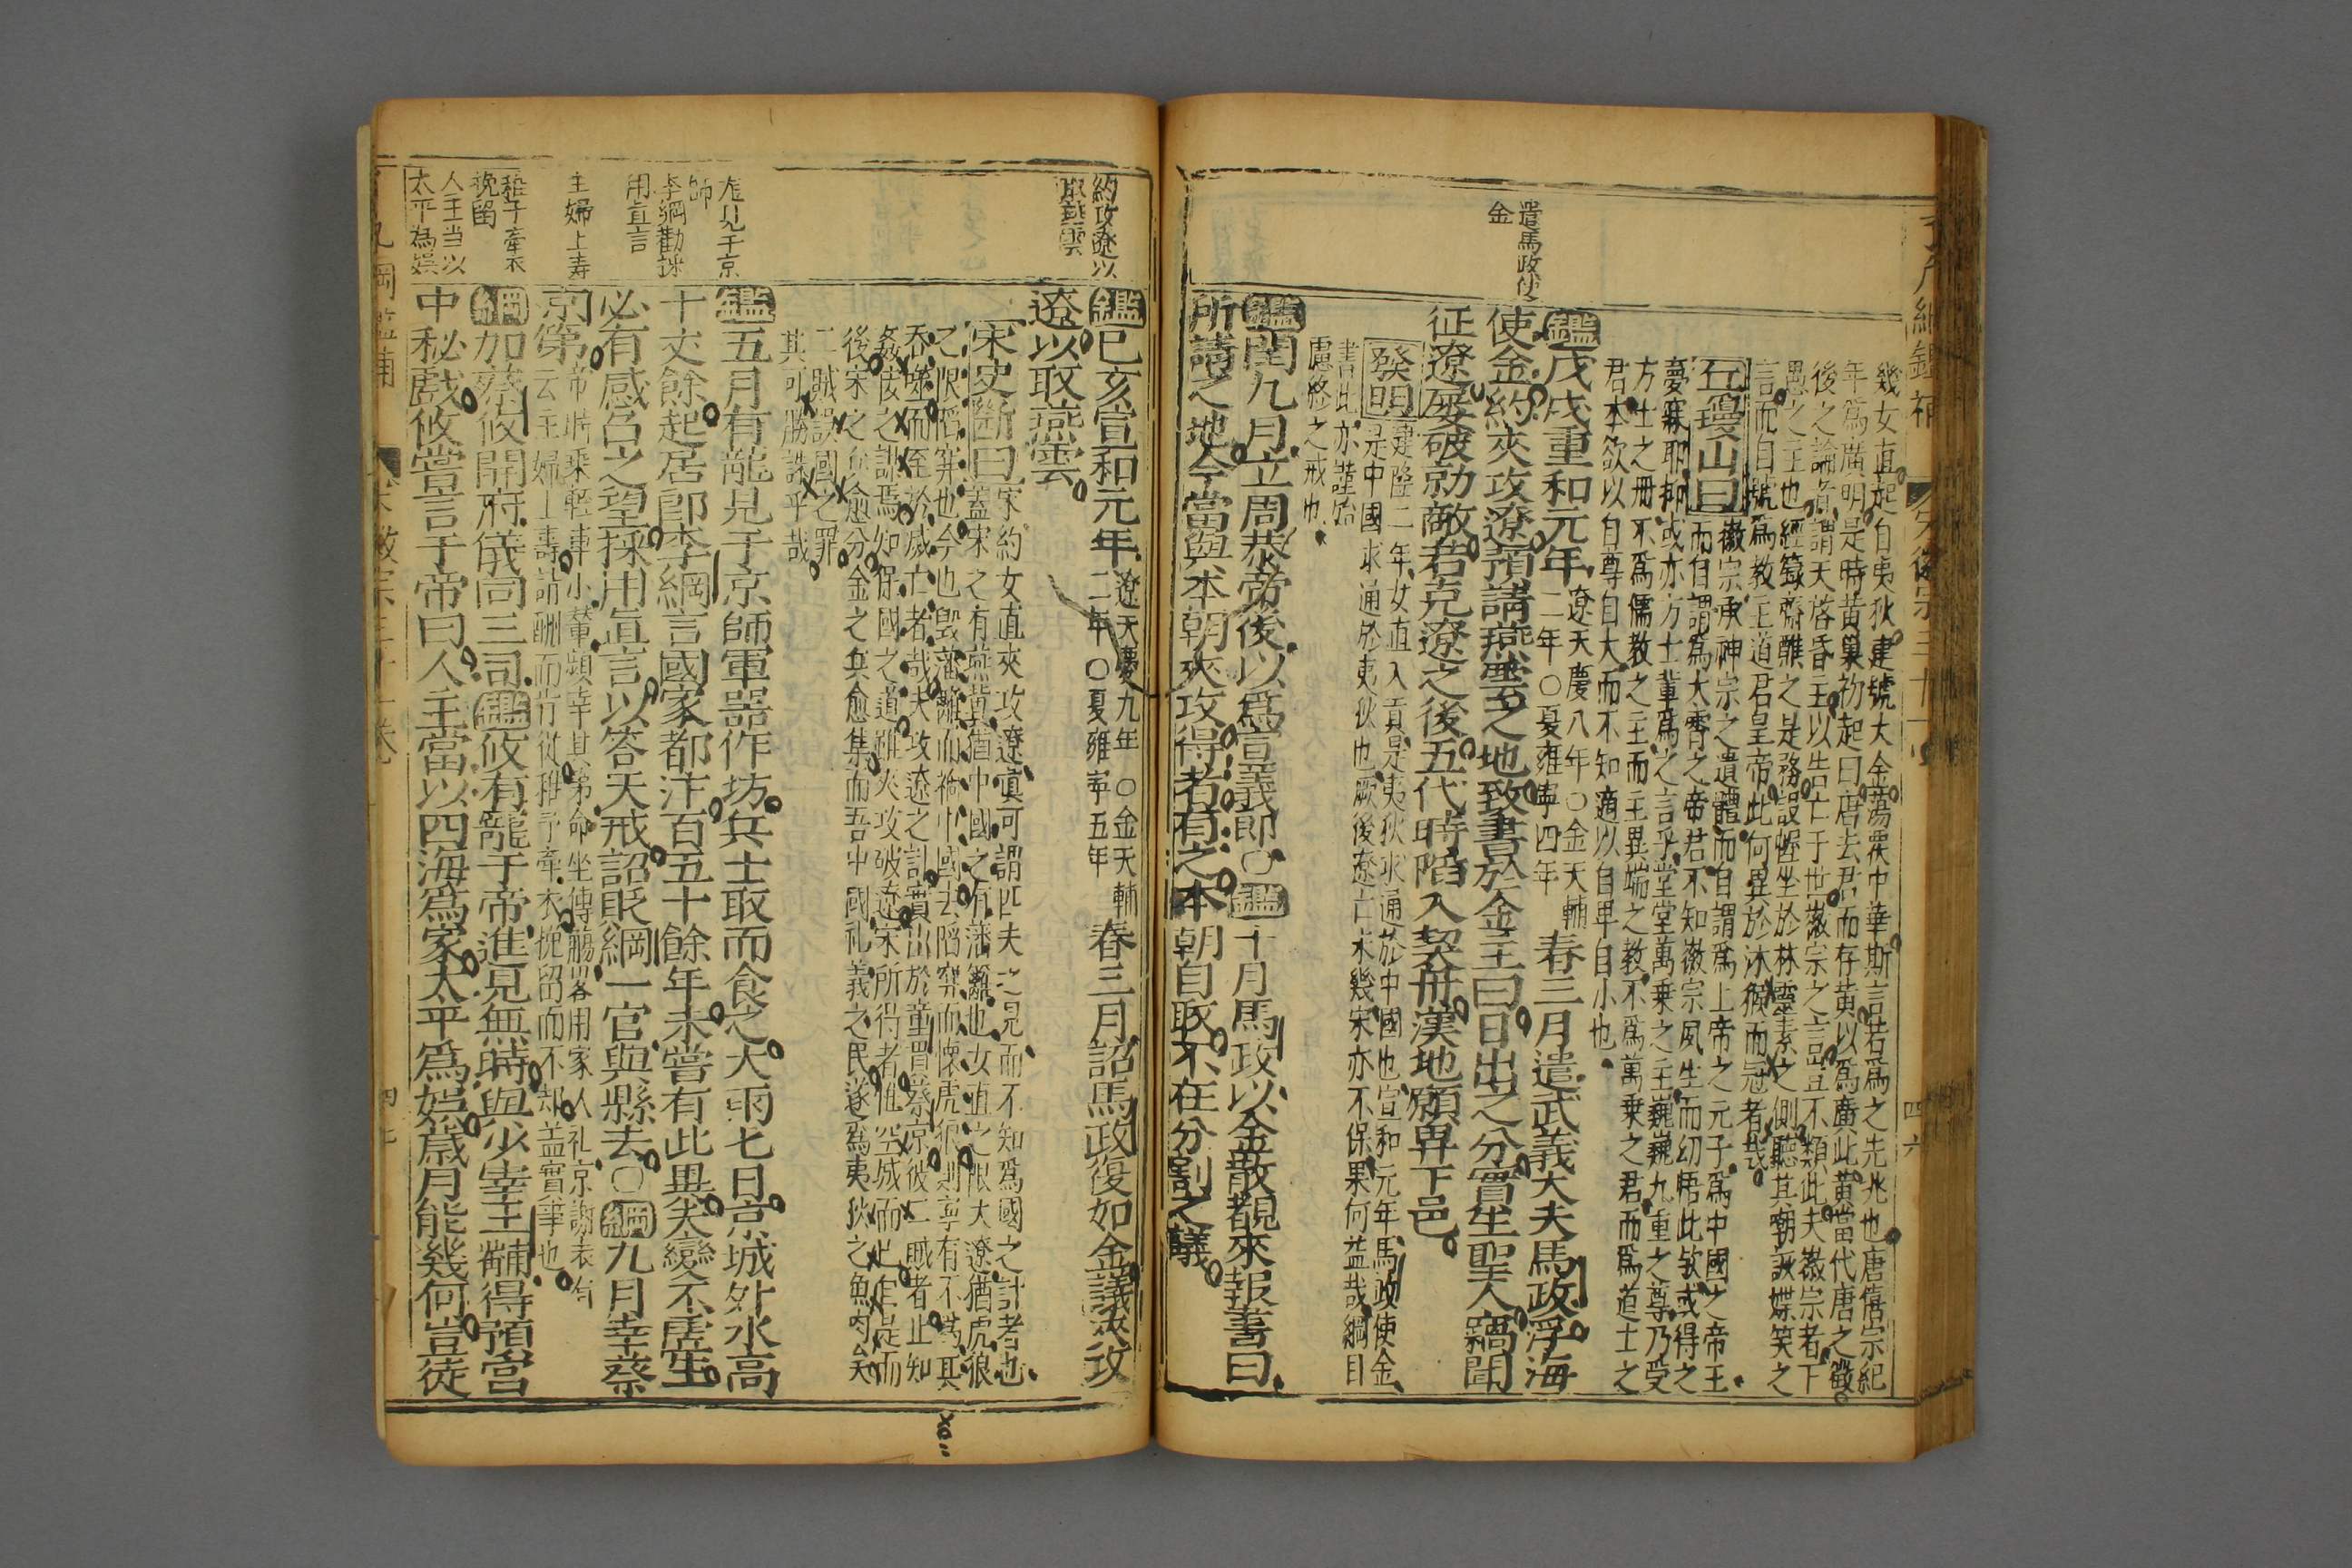 幾女直起自夷狄建號大金蕩覆中華斯言若爲之先兆也唐僖宗紀
年爲廣明是時黃巢初起曰唐去君而存黃以爲廣此黃當代唐之徵
後之論者謂天啓昏主以告亡于世徽宗之言豈不類此夫徽宗者下
愚之主也經籙齋醮之是務設幄坐於林靈素之側聽其嘲詼媟笑之
言而自號爲教主道君皇帝此何異於沐猴而冠者哉
丘瓊山曰徽宗承神宗之遺體而自謂爲上帝之元子爲中國之帝王
而自謂爲太霄之帝君不知徽宗夙生而幻悟此欤或得之
夢寐耶抑或亦方士輩爲之言乎堂堂萬乗之主巍巍九重之尊乃受
方士之冊不爲儒教之主而主異端之教不爲萬乗之君而爲道士之
君本欲以自尊自大而不知適以自卑自小也
遣馬政使
金
鑑戊戌重和元年遼天慶八年○金天輔
二年○夏雍寧四年春三月遣武義大夫馬政浮海
使金約夾攻遼預請燕雲之地致書於金主曰日出之分實生聖人竊聞
征遼屡破勍敵若克遼之後五代時陷入契丹漢地願畀下邑
發明建隆二年女直入貢是夷狄求通於中國也宣和元年馬政使金
是中國求通於夷狄也厥後遼亡未幾宋亦不保果何益哉綱目
書此亦謹始
慮終之戒也
鑑閏九月立周恭帝後以爲宣義郎○鑑十月馬政以金散覩來報書曰
所請之地今當與本朝夾攻得者有之本朝自取不在分割之議
約攻遼以
取燕雲
鑑己亥宣和元年遼天慶九年○金天輔
二年○夏雍寧五年春三月詔馬政復如金議攻
遼以取燕雲
宋史斷曰宋約女直夾攻遼真可謂匹夫之見而不知爲國之計者也
蓋宋之有燕冀猶中國之有藩籬也女直之限大遼猶虎狼
之限䧟穽也今也毀藩籬而禍中國去䧟穽而懷虎狼則寧有不爲其
吞噬而至於滅亡者哉夫攻遼之計實出於童貫蔡京彼二賊者止知
姦佞之謀焉知保國之道雖夾攻破遼宋所得者惟空城而止自是而
後宋之兵愈分金之兵愈集而吾中國礼義之民遂爲夷狄之魚肉矣
二賊誤國之罪
其可勝誅乎哉
龍見于京
師
李綱勸誺
用直言
鑑五月有龍見于京師軍器作坊兵士取而食之大雨七日京城外水高
十丈餘起居郎李綱言國家都汴百五十餘年未嘗有此異夫變不虛生
必有感召之望採用直言以答天戒詔貶綱一官與縣去○綱九月幸蔡
主婦上壽
稚子牽衣
挽留
京第帝時乘輕車小輦頻幸其第命坐傳觴畧用家人礼京謝表有
云主婦上壽請酬而肯從稚子牽衣挽留而不却盖實事也
綱加蔡攸開府儀同三司鑑攸有寵于帝進見無時與少宰王黼得預宮
人主当以
太平為娯
中秘戲攸嘗言于帝曰人主當以四海爲家太平爲娯歲月能幾何豈徒